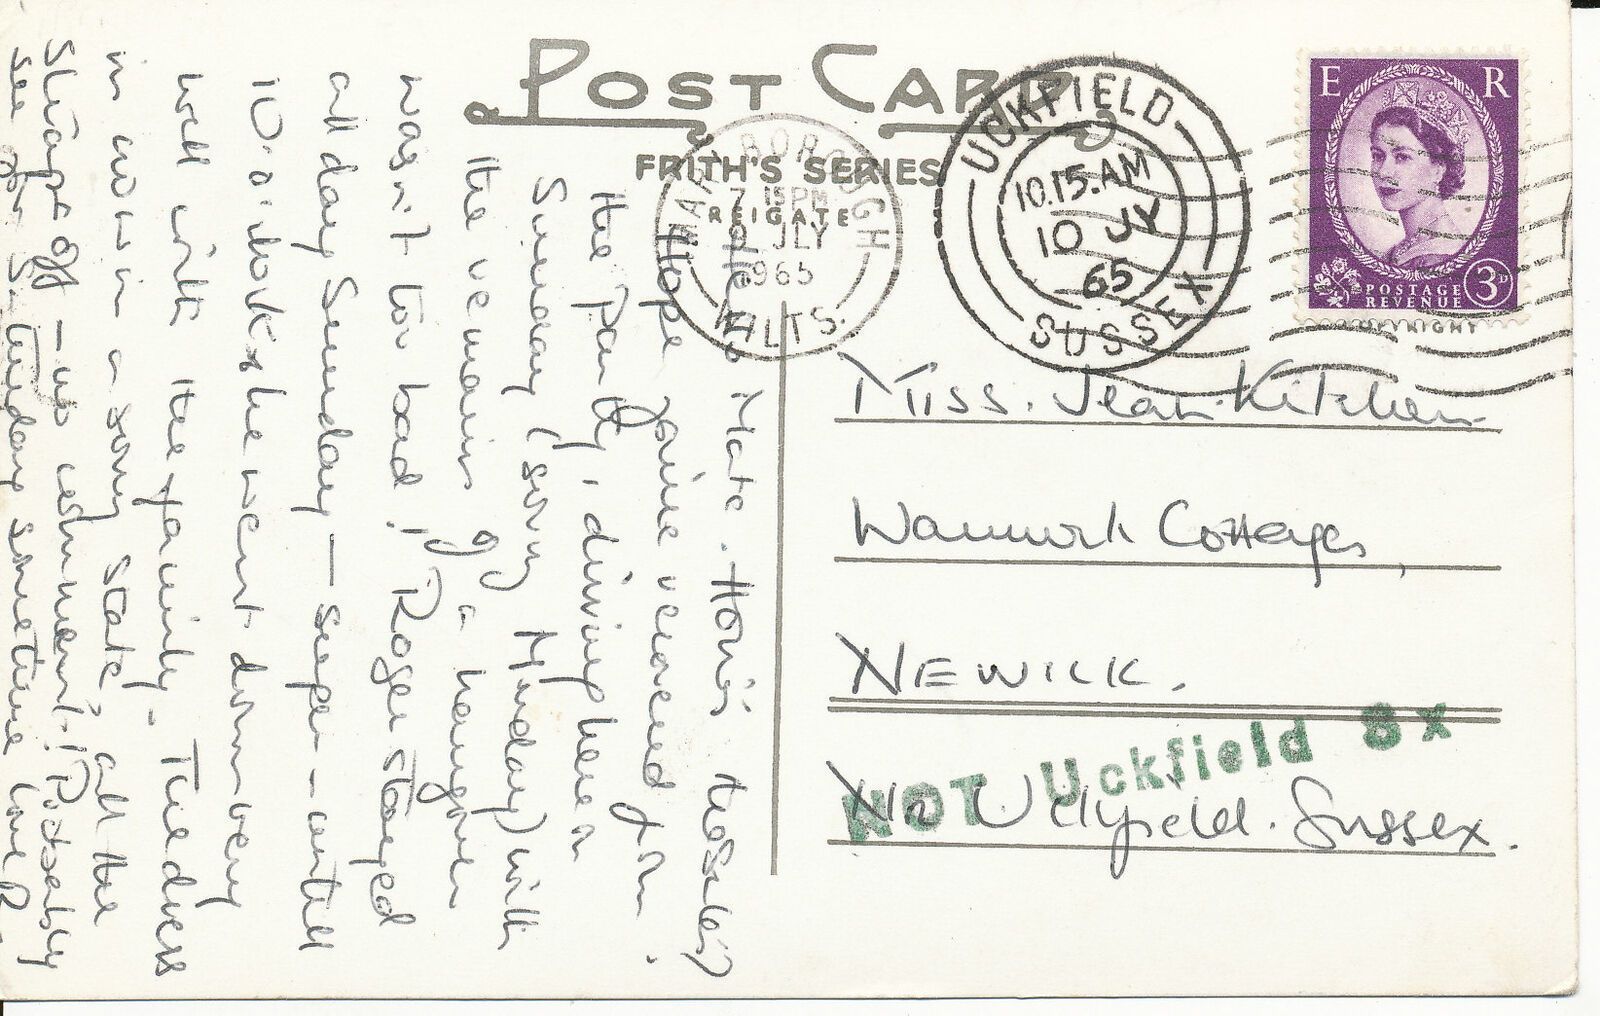 POST CARD
FRITH'S SERIES
REIGATE
MARLBOROUGH
7.15PM
9 JLY
1965
WILTS.
UCKFIELD
10.15.AM
10 JY
65
SUSSEX
E R
POSTAGE
REVENUE
3D
Miss. Jean Kitchen
Cottages,
NEWICK.
Nr Uckfield. Sussex.
NOT Uckfield Sx
Hello Mate. How's tootsies?
Hope you've recovered from
the party, driving here on
Sunday (sorry Monday) with
the remains of a hangover
wasn't too bad! Roger stayed
all day Sunday – super – until
10 o'clock & he went down very
well with the family. The dress
is now in a sorry state, all the
straps off – no comment! Possibly
see you Sunday sometime love R.